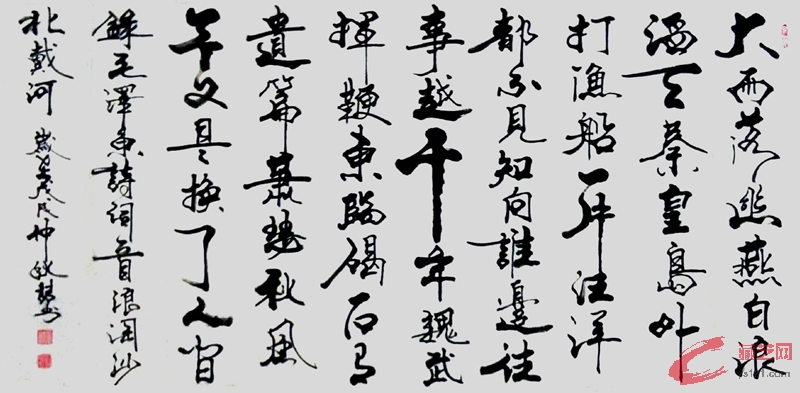 大雨落幽燕白浪
滔天秦皇島外
打漁船一片汪洋
都不見知向誰邊往
事越千年魏武
揮鞭東臨碣石有
遺篇蕭瑟秋風
今又是換了人間
錄毛澤東詩詞一首浪淘沙
北戴河 歲 仲秋